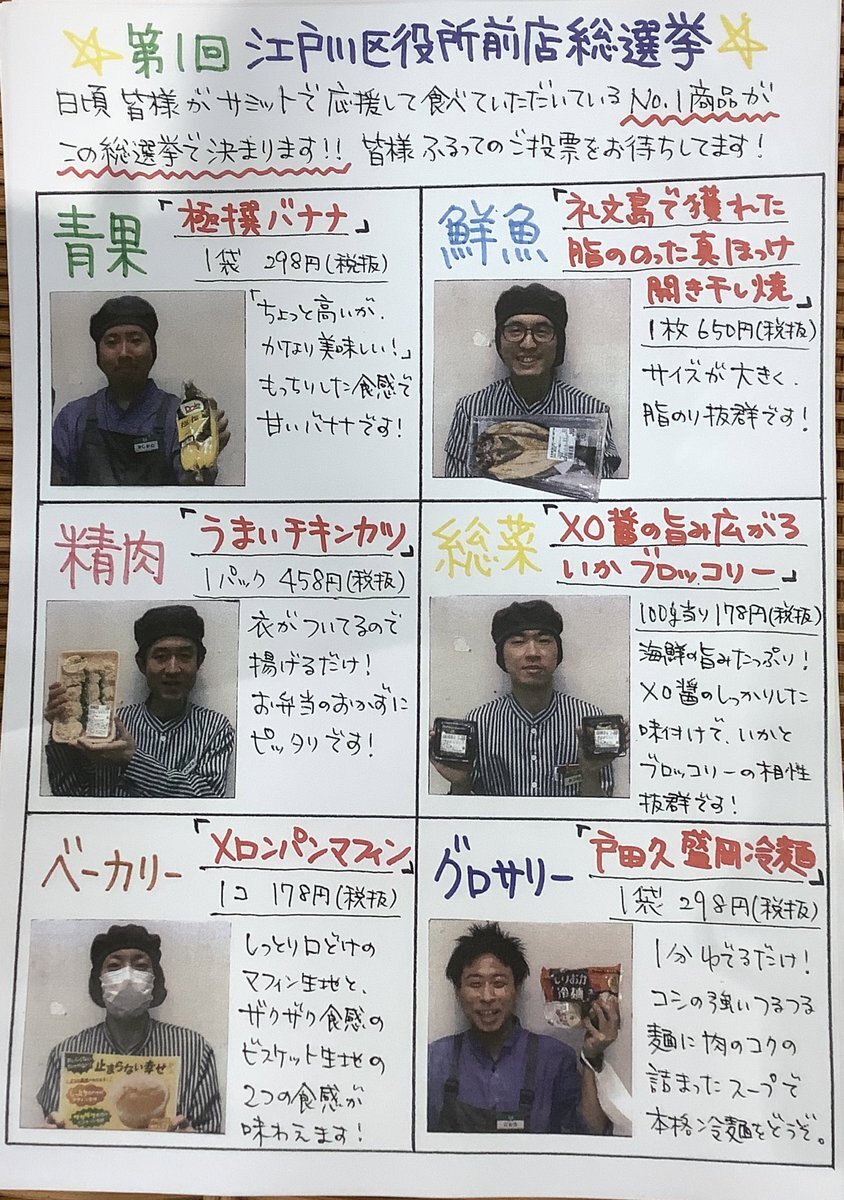 第1回 江戸川区役所前店総選挙
日頃 皆様がサミットで応援して食べていただいているNo.1商品が
この総選挙で決まります!! 皆様ふるってのご投票をお待ちしてます!
青果
「極撰バナナ」
1袋 298円(税抜)
「ちょっと高いが、
かなり美味しい!」
もっちりした食感で
甘いバナナです!
鮮魚
「礼文島で獲れた
脂ののった真ほっけ
開き干し焼」
1枚 650円(税抜)
サイズが大きく、
脂のり抜群です!
精肉
「うまいチキンカツ」
1パック 458円(税抜)
衣がついてるので
揚げるだけ!
お弁当のおかずに
ピッタリです!
総菜
「XO醤の旨み広がる
いかブロッコリー」
100g当り 178円(税抜)
海鮮の旨みたっぷり!
XO醤のしっかりした
味付けで、いかと
ブロッコリーの相性
抜群です!
ベーカリー
「メロンパンマフィン」
1コ 178円(税抜)
しっとり口どけの
マフィン生地と、
ザクザク食感の
ビスケット生地の
2つの食感が
味わえます!
止まらない幸せ
グロサリー
「戸田久 盛岡冷麺」
1袋 298円(税抜)
1分ゆでるだけ!
コシの強いつるつる
麺に肉のコクの
詰まったスープで
本格冷麺をどうぞ。
もりおか
冷麺